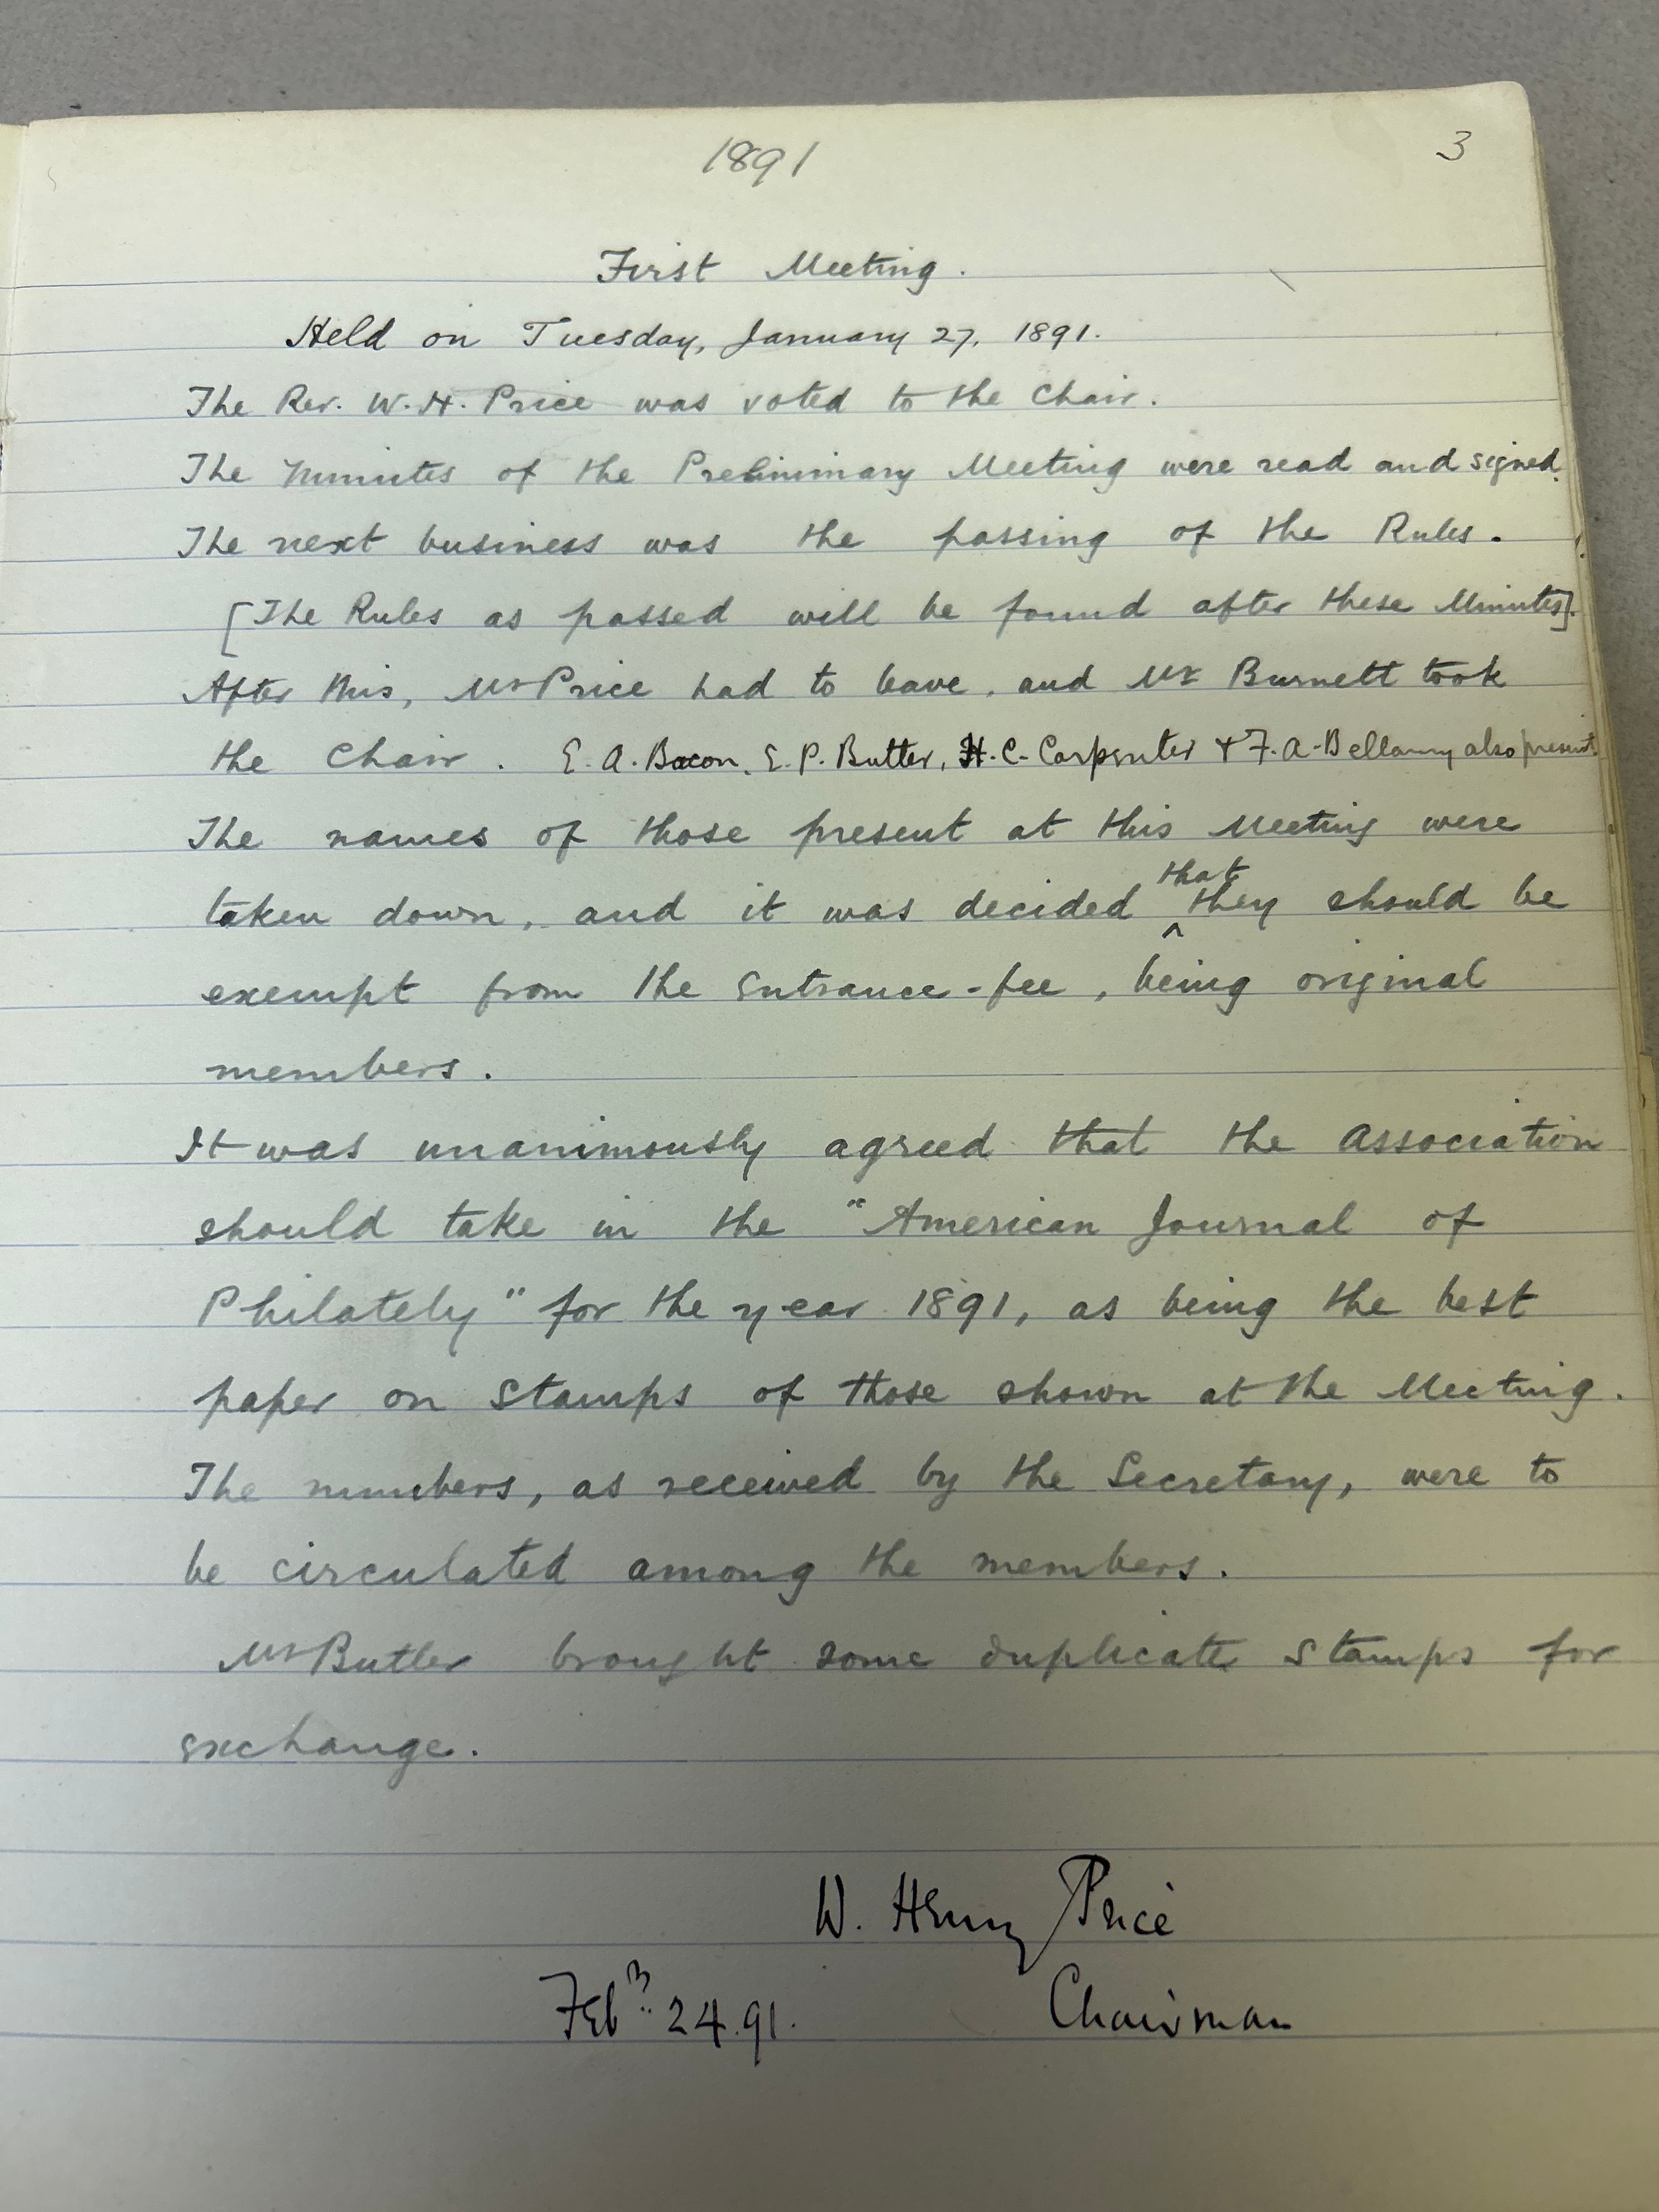 1891
3
First Meeting.
Held on Tuesday, January 27, 1891.
The Rev. W. H. Price was voted to the Chair.
The Minutes of the Preliminary Meeting were read and signed.
The next business was the passing of the Rules.
[The Rules as passed will be found after these Minutes].
After this, Mr Price had to leave, and Mr Burnett took
the Chair. E. A. Bacon, E. P. Butler, H. C. Carpenter & F. A. Bellamy also present.
The names of those present at this Meeting were
that
taken down, and it was decided ^ they should be
exempt from the Entrance-fee, being original
members.
It was unanimously agreed that the Association
should take in the "American Journal of
Philately" for the year 1891, as being the best
paper on Stamps of those shown at the Meeting.
The numbers, as received by the Secretary, were to
be circulated among the members.
Mr Butler brought some duplicate Stamps for
exchange.
W. Henry Price
Feby 24. 91. Chairman